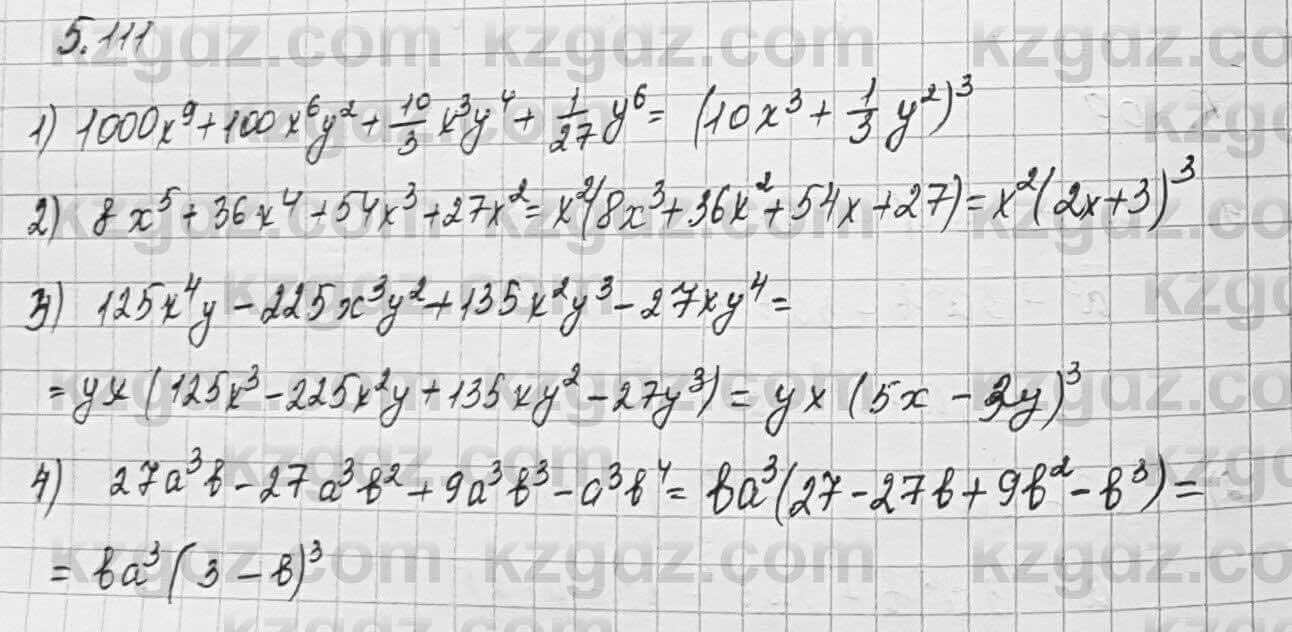 5.111
1) 1000x⁹+100x⁶y²+10/3 x³y⁴+1/27 y⁶= (10x³+1/3 y²)³
2) 8x⁵+36x⁴+54x³+27x²=x²(8x³+36x²+54x+27)=x²(2x+3)³
3) 125x⁴y-225x³y²+135x²y³-27xy⁴=
=yx(125x³-225x²y+135xy²-27y³)=yx(5x-3y)³
4) 27a³b-27a³b²+9a³b³-a³b⁴=ba³(27-27b+9b²-b³)=
=ba³(3-b)³
kzgdz.com